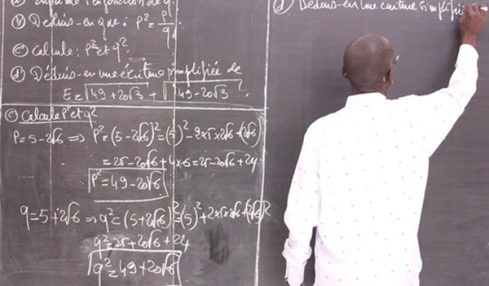 q.
b) Déduis-en que : P² = P/q.
c) Calcule : P² et q².
d) Déduis-en une écriture simplifiée de
E = √49+20√3 + √49-20√3.
c) Calcule P² et q²
P = 5-2√6 ⇒ P² = (5-2√6)² = (5)² - 2×5×2√6 + (2√6)²
= 25-20√6 + 4×6 = 25-20√6 + 24
P² = 49-20√6
q = 5+2√6 ⇒ q² = (5+2√6)² = (5)² + 2×5×2√6 + (2√6)²
q² = 25+20√6 + 24
q² = 49+20√6
d) Déduis-en une écriture simplifiée